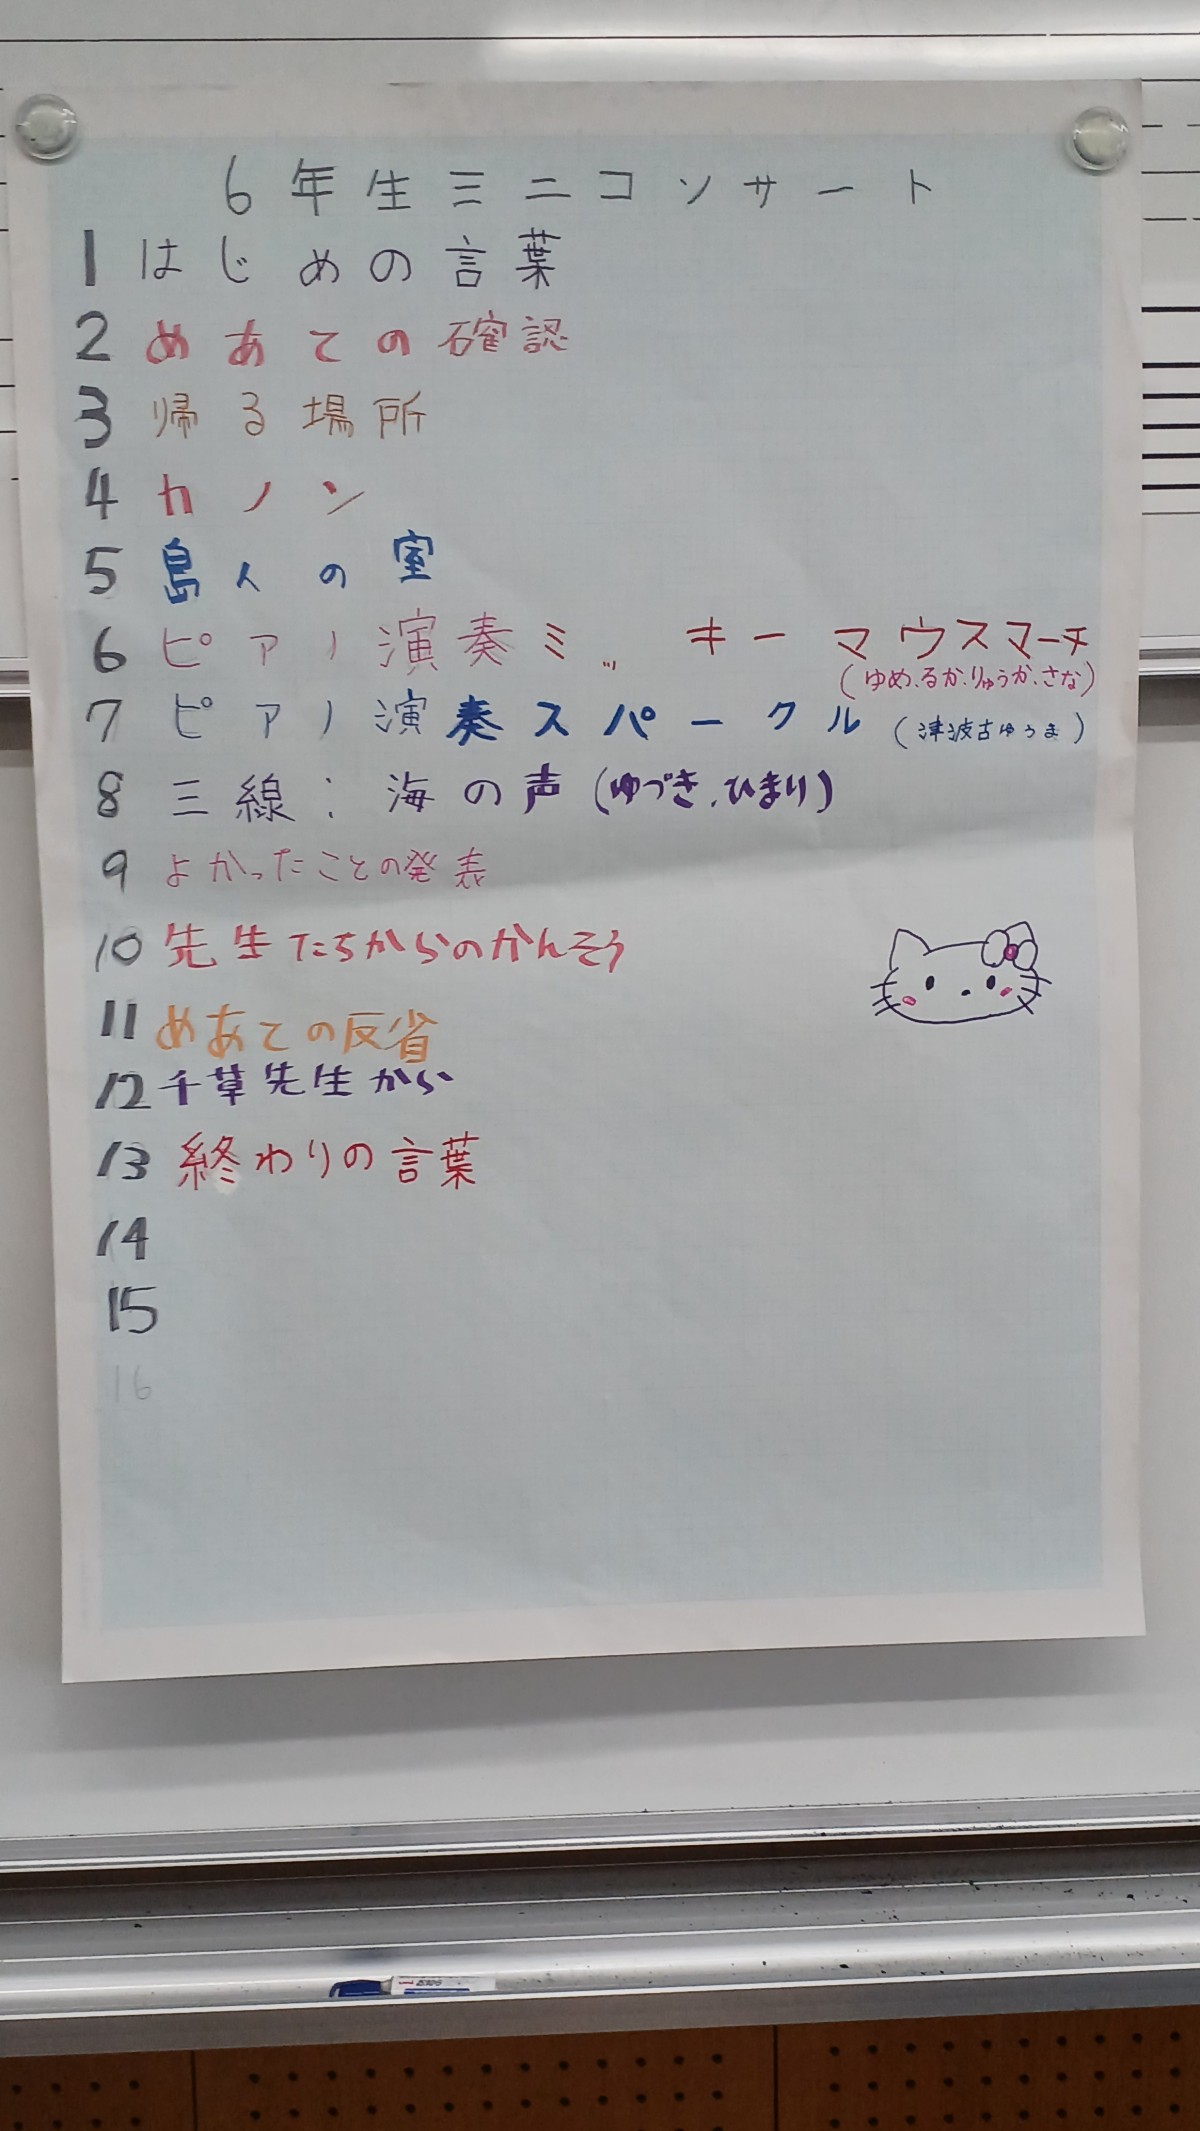 6年生ミニコンサート
1 はじめの言葉
2 めあての確認
3 帰る場所
4 カノン
5 島人の室
6 ピアノ演奏ミッキーマウスマーチ
(ゆめ、るか、りゅうか、さな)
7 ピアノ演奏スパークル (津波古ゆうま)
8 三線: 海の声 (ゆづき、ひまり)
9 よかったことの発表
10 先生たちからのかんそう
11 めあての反省
12 千草先生から
13 終わりの言葉
14
15
16